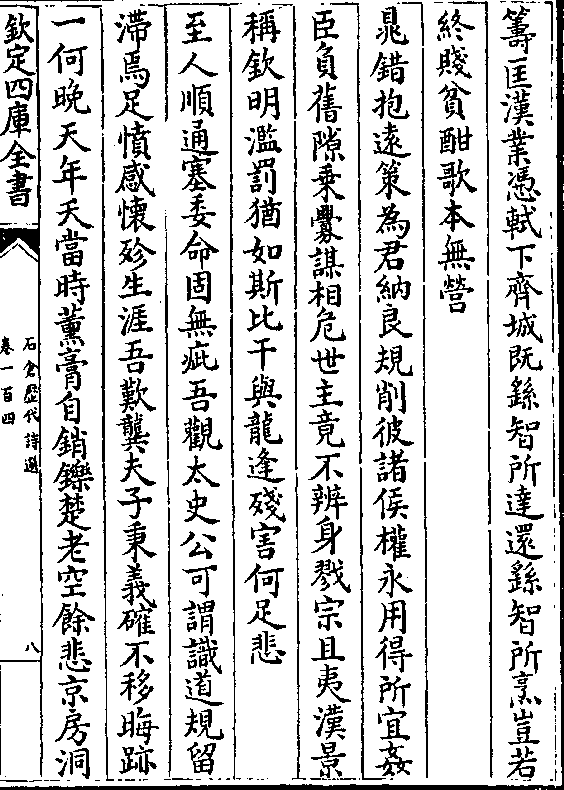 籌匡漢業憑軾下齊城既繇智所達還繇智所烹豈若
終賤貧酣歌本無營
晁錯抱遠策為君納良規削彼諸侯權永用得所宜姦
臣負舊隙乗釁謀相危世主竟不辨身戮宗且夷漢景
稱欽明濫罰猶如斯比干與龍逢殘害何足悲
至人順通塞委命固無疵吾觀太史公可謂識道規留
滯焉足憤感懷殄生涯吾歎龔夫子秉義確不移晦跡
一何晩天年夭當時薰膏自銷鑠楚老空餘悲京房洞
欽定四庫全書
石倉歷代詩選
卷一百四
八